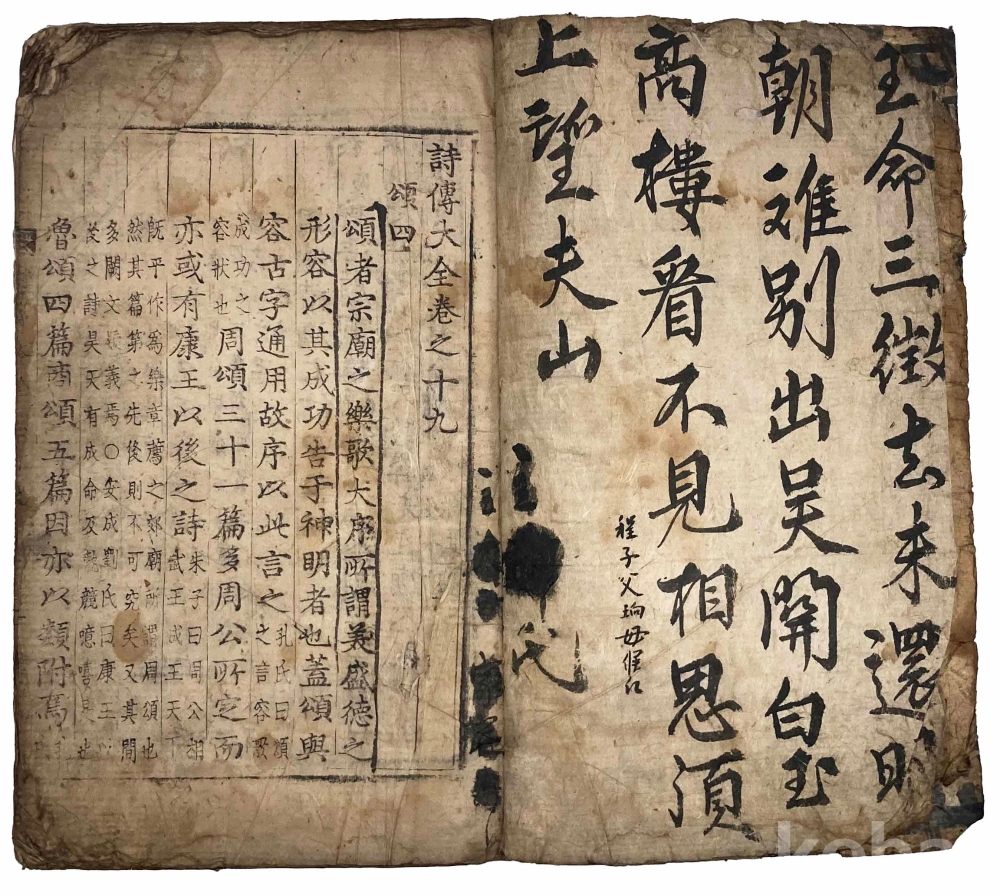 王命三徵去未還明
朝離別出吳關白玉
高樓看不見相思須
上望夫山
程子父珦母
氏
詩傳大全卷之十九
頌四
頌者宗廟之樂歌大序所謂美盛德之
形容以其成功告于神明者也蓋頌與
容古字通用故序以此言之孔氏曰頌之言容歌
成功之容狀也周頌三十一篇多周公所定而
亦或有康王以後之詩朱子曰周公相武王成王天下
既平作爲樂章薦之郊廟所謂周頌也
然其篇第之先後則不可究矣又其間
多闕文疑義焉○安成劉氏曰康王以
後之詩昊天有成命及執競噫嘻是也
魯頌四篇商頌五篇因亦以類附焉
koba